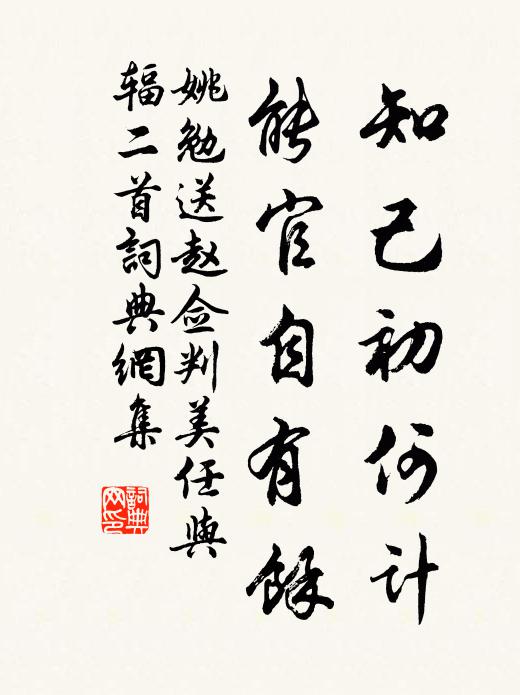 知己初何计
能官自有餘
姚勉送赵佥判美任與
辐二首詞典網集
詞典网印